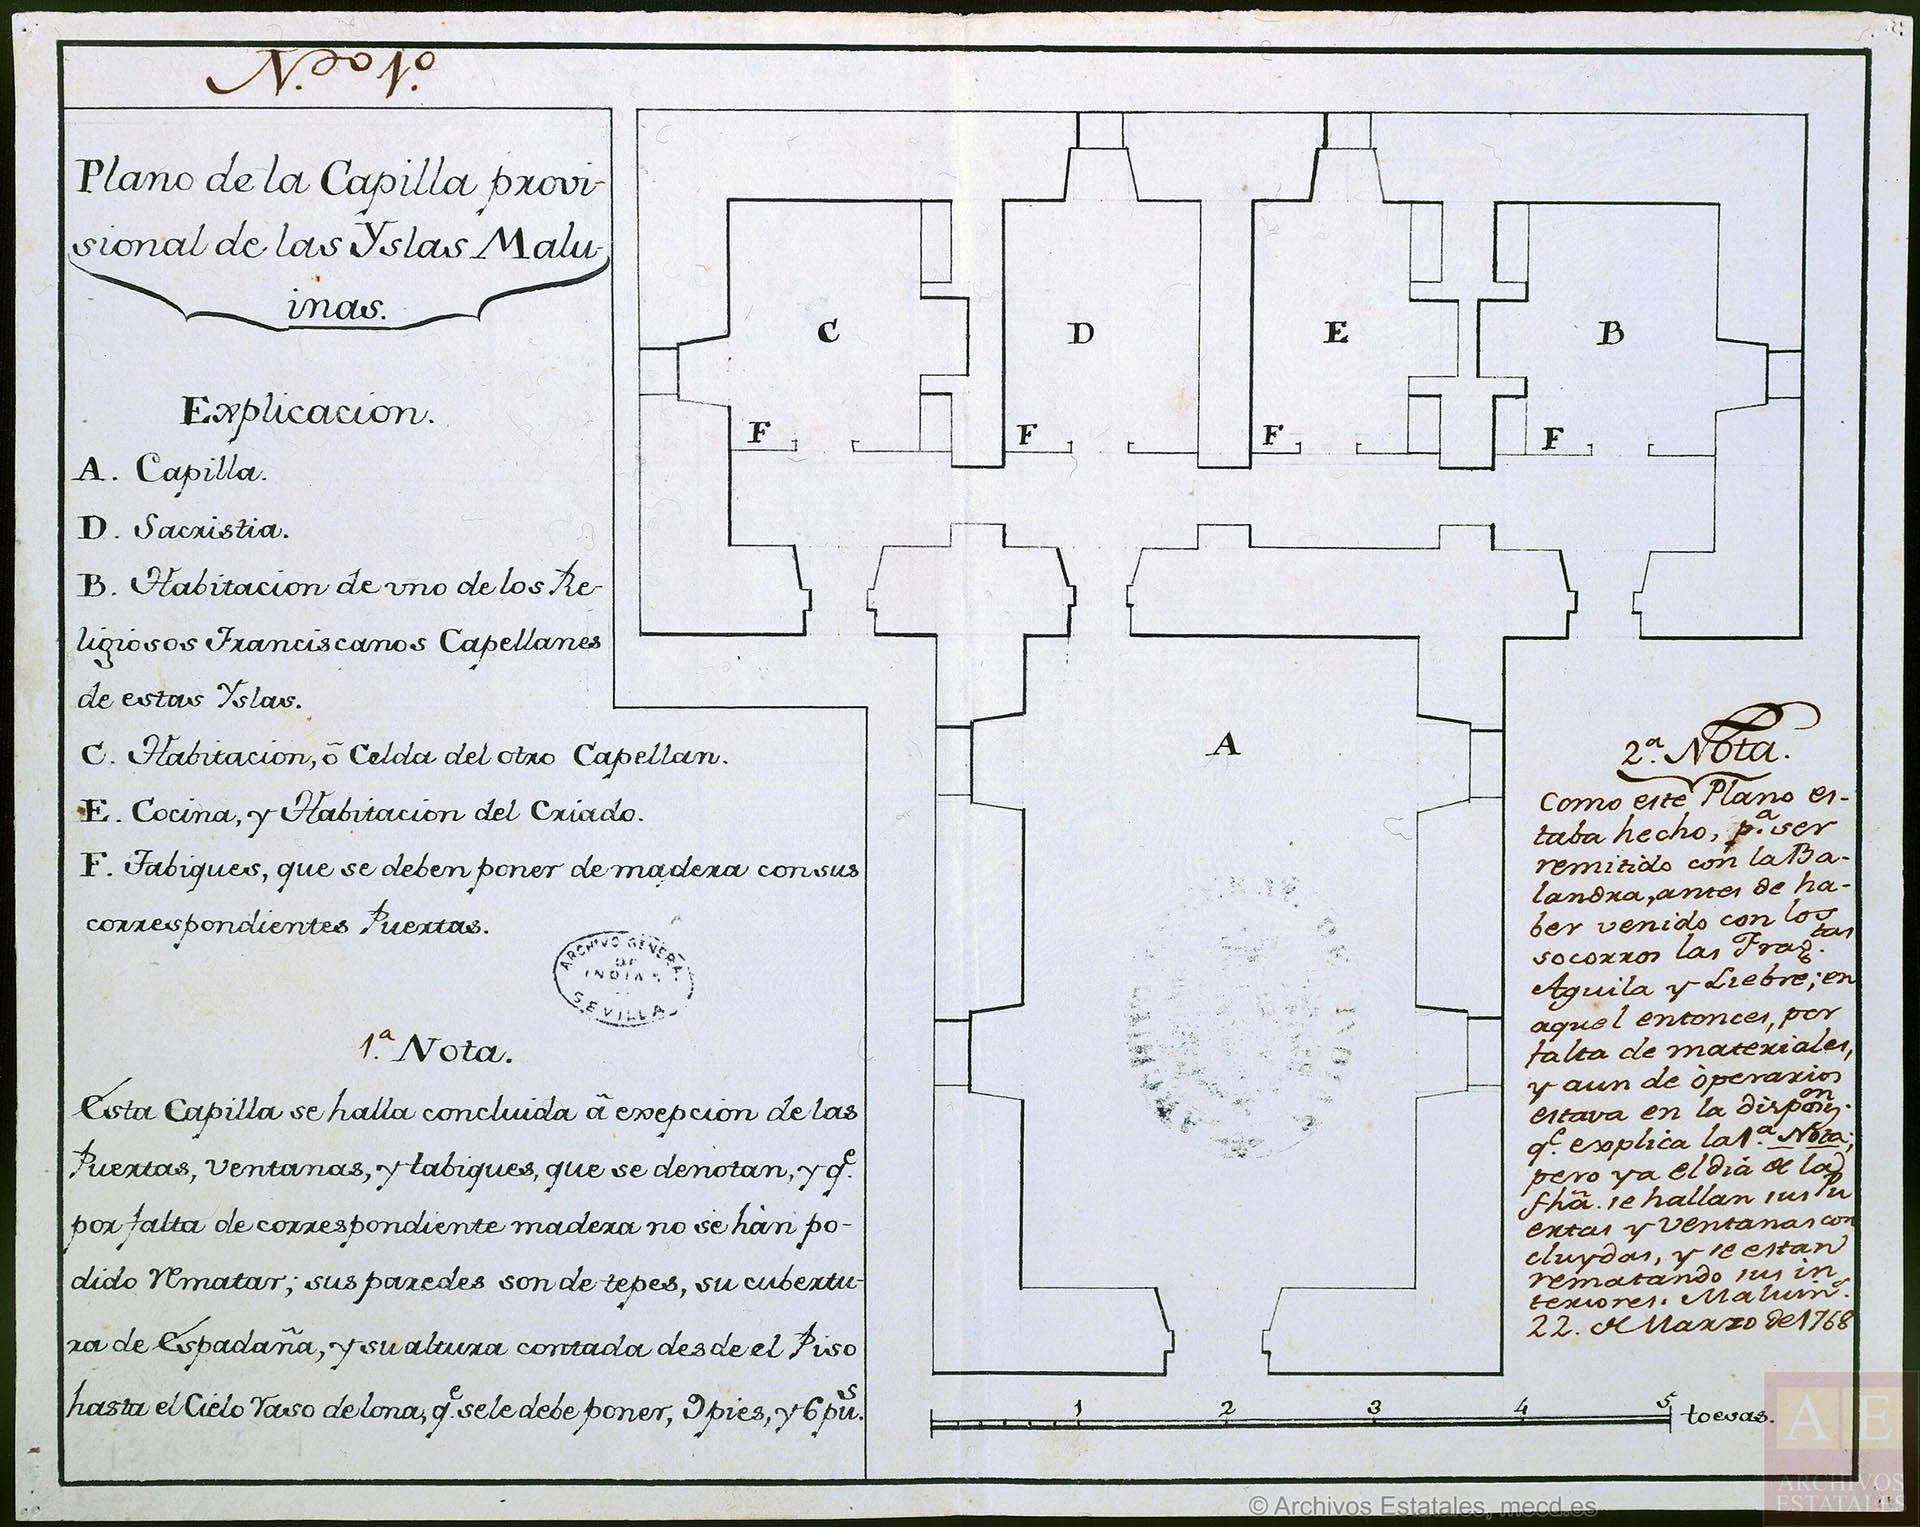 Plano de la Capilla provi-
sional de las Yslas Malu-
inas.
Explicacion.
A. Capilla.
D. Sacristia.
B. Habitacion de vno de los Re-
ligiosos Franciscanos Capellanes
de estas Yslas.
C. Habitacion, ô Celda del otro Capellan.
E. Cocina, y Habitacion del Criado.
F. Tabiques, que se deben poner de madera con sus
correspondientes Puertas.
ARCHIVO GENERAL
DE
INDIAS
SEVILLA
1.ª Nota.
Esta Capilla se halla concluida â exepcion de las
Puertas, ventanas, y tabiques, que se denotan, y q.e
por falta de correspondiente madera no se hàn po-
dido rematar; sus paredes son de tepes, su cubertu-
ra de Espadaña, y su altura contada desde el Piso
hasta el Cielo raso de lona, q.e se le debe poner, 9 pies, y 6 pu.s
C
D
E
B
F
F
F
F
A
2.ª Nota.
Como este Plano es-
taba hecho, p.a ser
remitido con la Ba-
landra, antes de ha-
ber venido con los
socorros las Frag.tas
Aguila y Liebre; en
aquel entonces, por
falta de materiales,
y aun de òperarios
estava en la dispon.on
q.e explica la 1.ª Nota;
pero ya el dia de la
fhã. se hallan sus Pu
ertas y Ventanas con
cluydas, y se estan
rematando sus in
teriores. Maluin.s
22. de Marzo de 1768
1 2 3 4 5 toesas.
AE
ARCHIVOS
ESTATALES
© Archivos Estatales, mecd.es